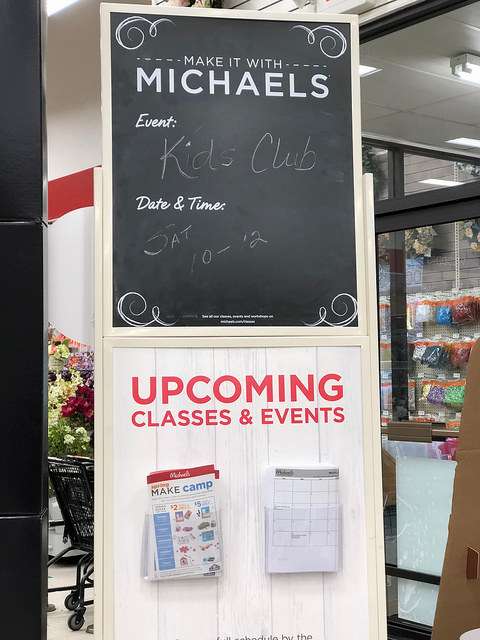 MAKE IT WITH
MICHAELS
Event:
Kids Club
Date & Time:
SAT
10-12
See all our classes, events and workshops on
michaels.com/classes
UPCOMING
CLASSES & EVENTS
Michaels
spring
MAKE camp
$2
$5
Michaels
full schedule by the